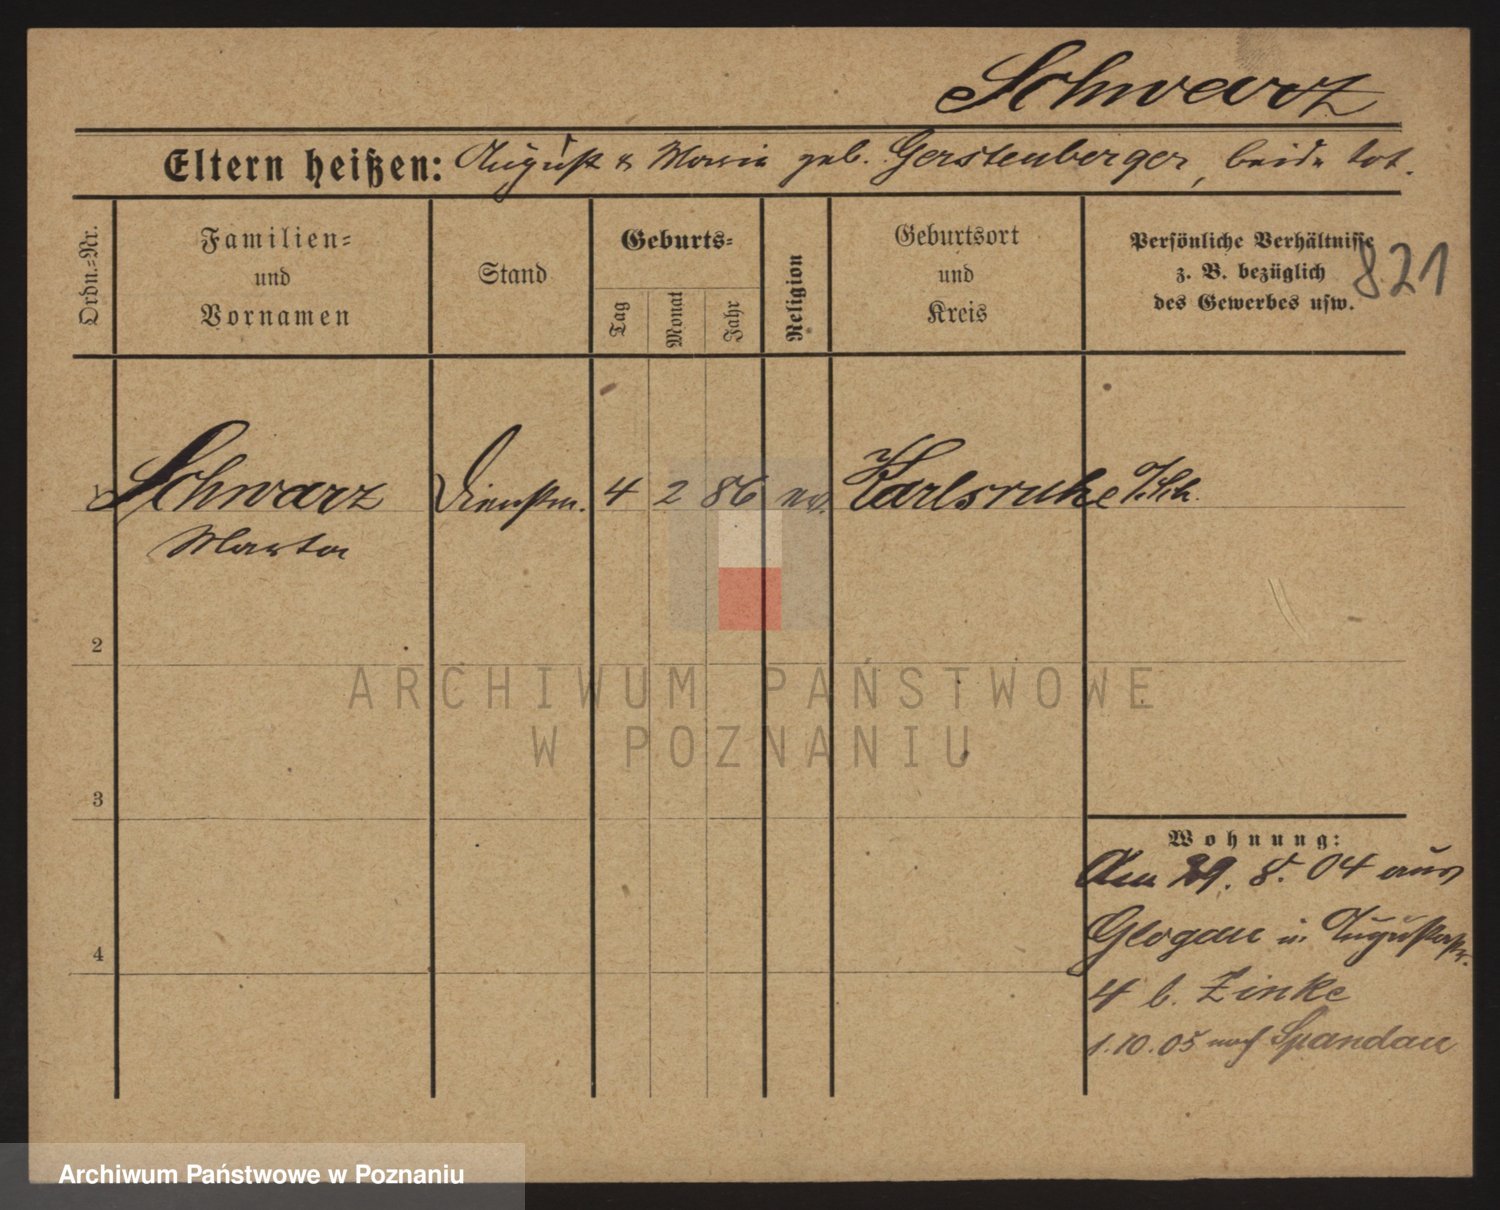 Schwarz
Eltern heißen: August & Marie geb. Gerstenberger, beide tot.
Ordn.-Nr.
Familien- und Vornamen
Stand
Geburts-
Tag
Monat
Jahr
Religion
Geburtsort und Kreis
Persönliche Verhältnisse z. B. bezüglich des Gewerbes usw.
821
1 Schwarz Dienstm. 4 2 86 ev. Karlsruhe
Martha
2
3
4
Wohnung:
Am 29. 8. 04 aus
Glogau in Augustastr.
4 b. Zinke
1.10.05 nach Spandau
ARCHIWUM PAŃSTWOWE
W POZNANIU
Archiwum Państwowe w Poznaniu